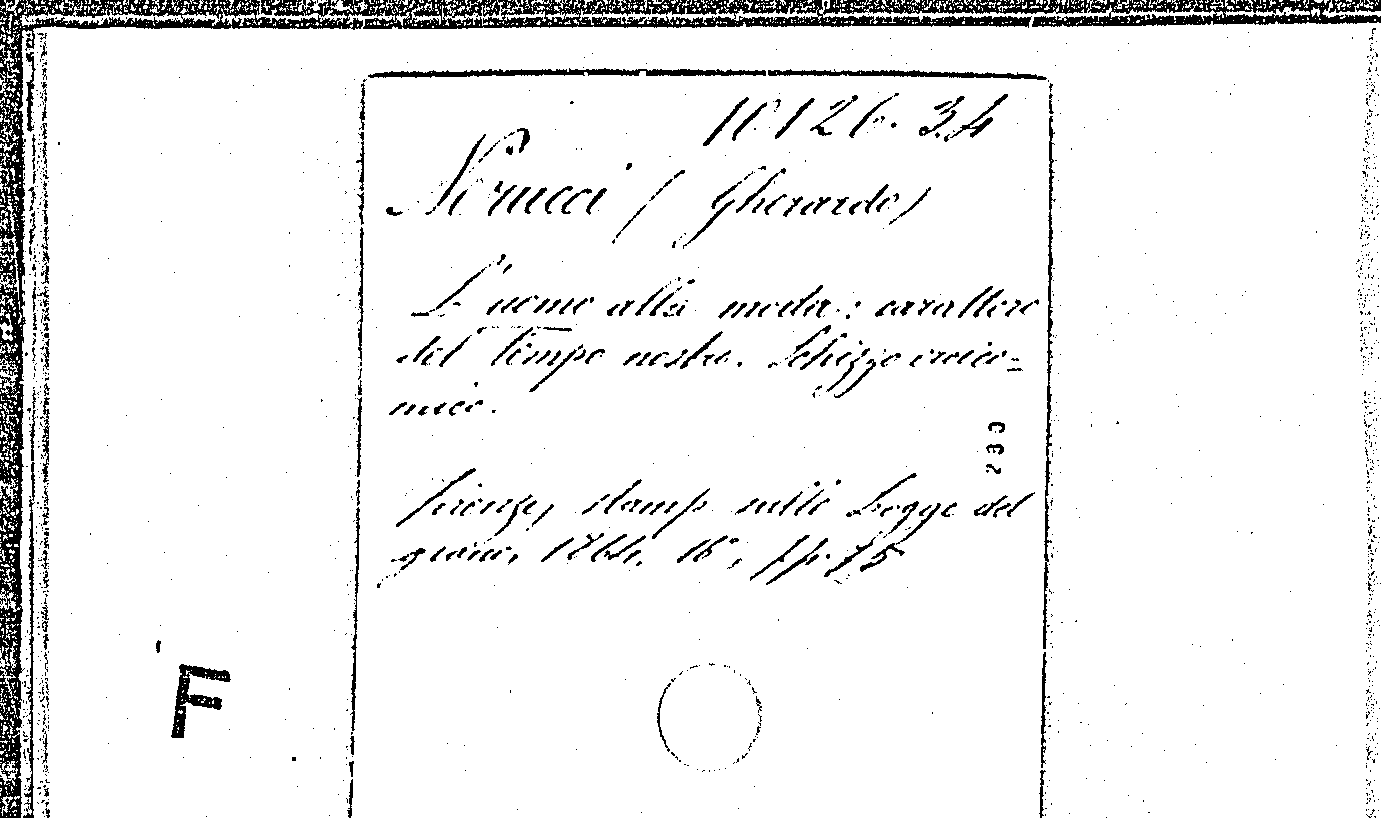 10126.34
Nerucci (Gherardo)
L'uomo alla moda: carattere
del tempo nostro. Schizzo eroico=
mico.
233
Firenze, stamp. sulle Logge del
grano, 1864. 16°, pp. 75
F